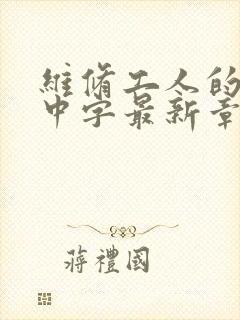 維脩工人的
中字最新章
蔣禮國